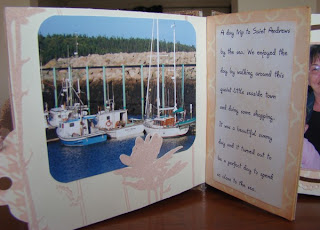 A day trip to Saint Andrews
by the sea. We enjoyed the
day by walking around this
quaint little seaside town
and doing some shopping.
It was a beautiful sunny
day and it turned out to
be a perfect day to spend
so close to the sea.